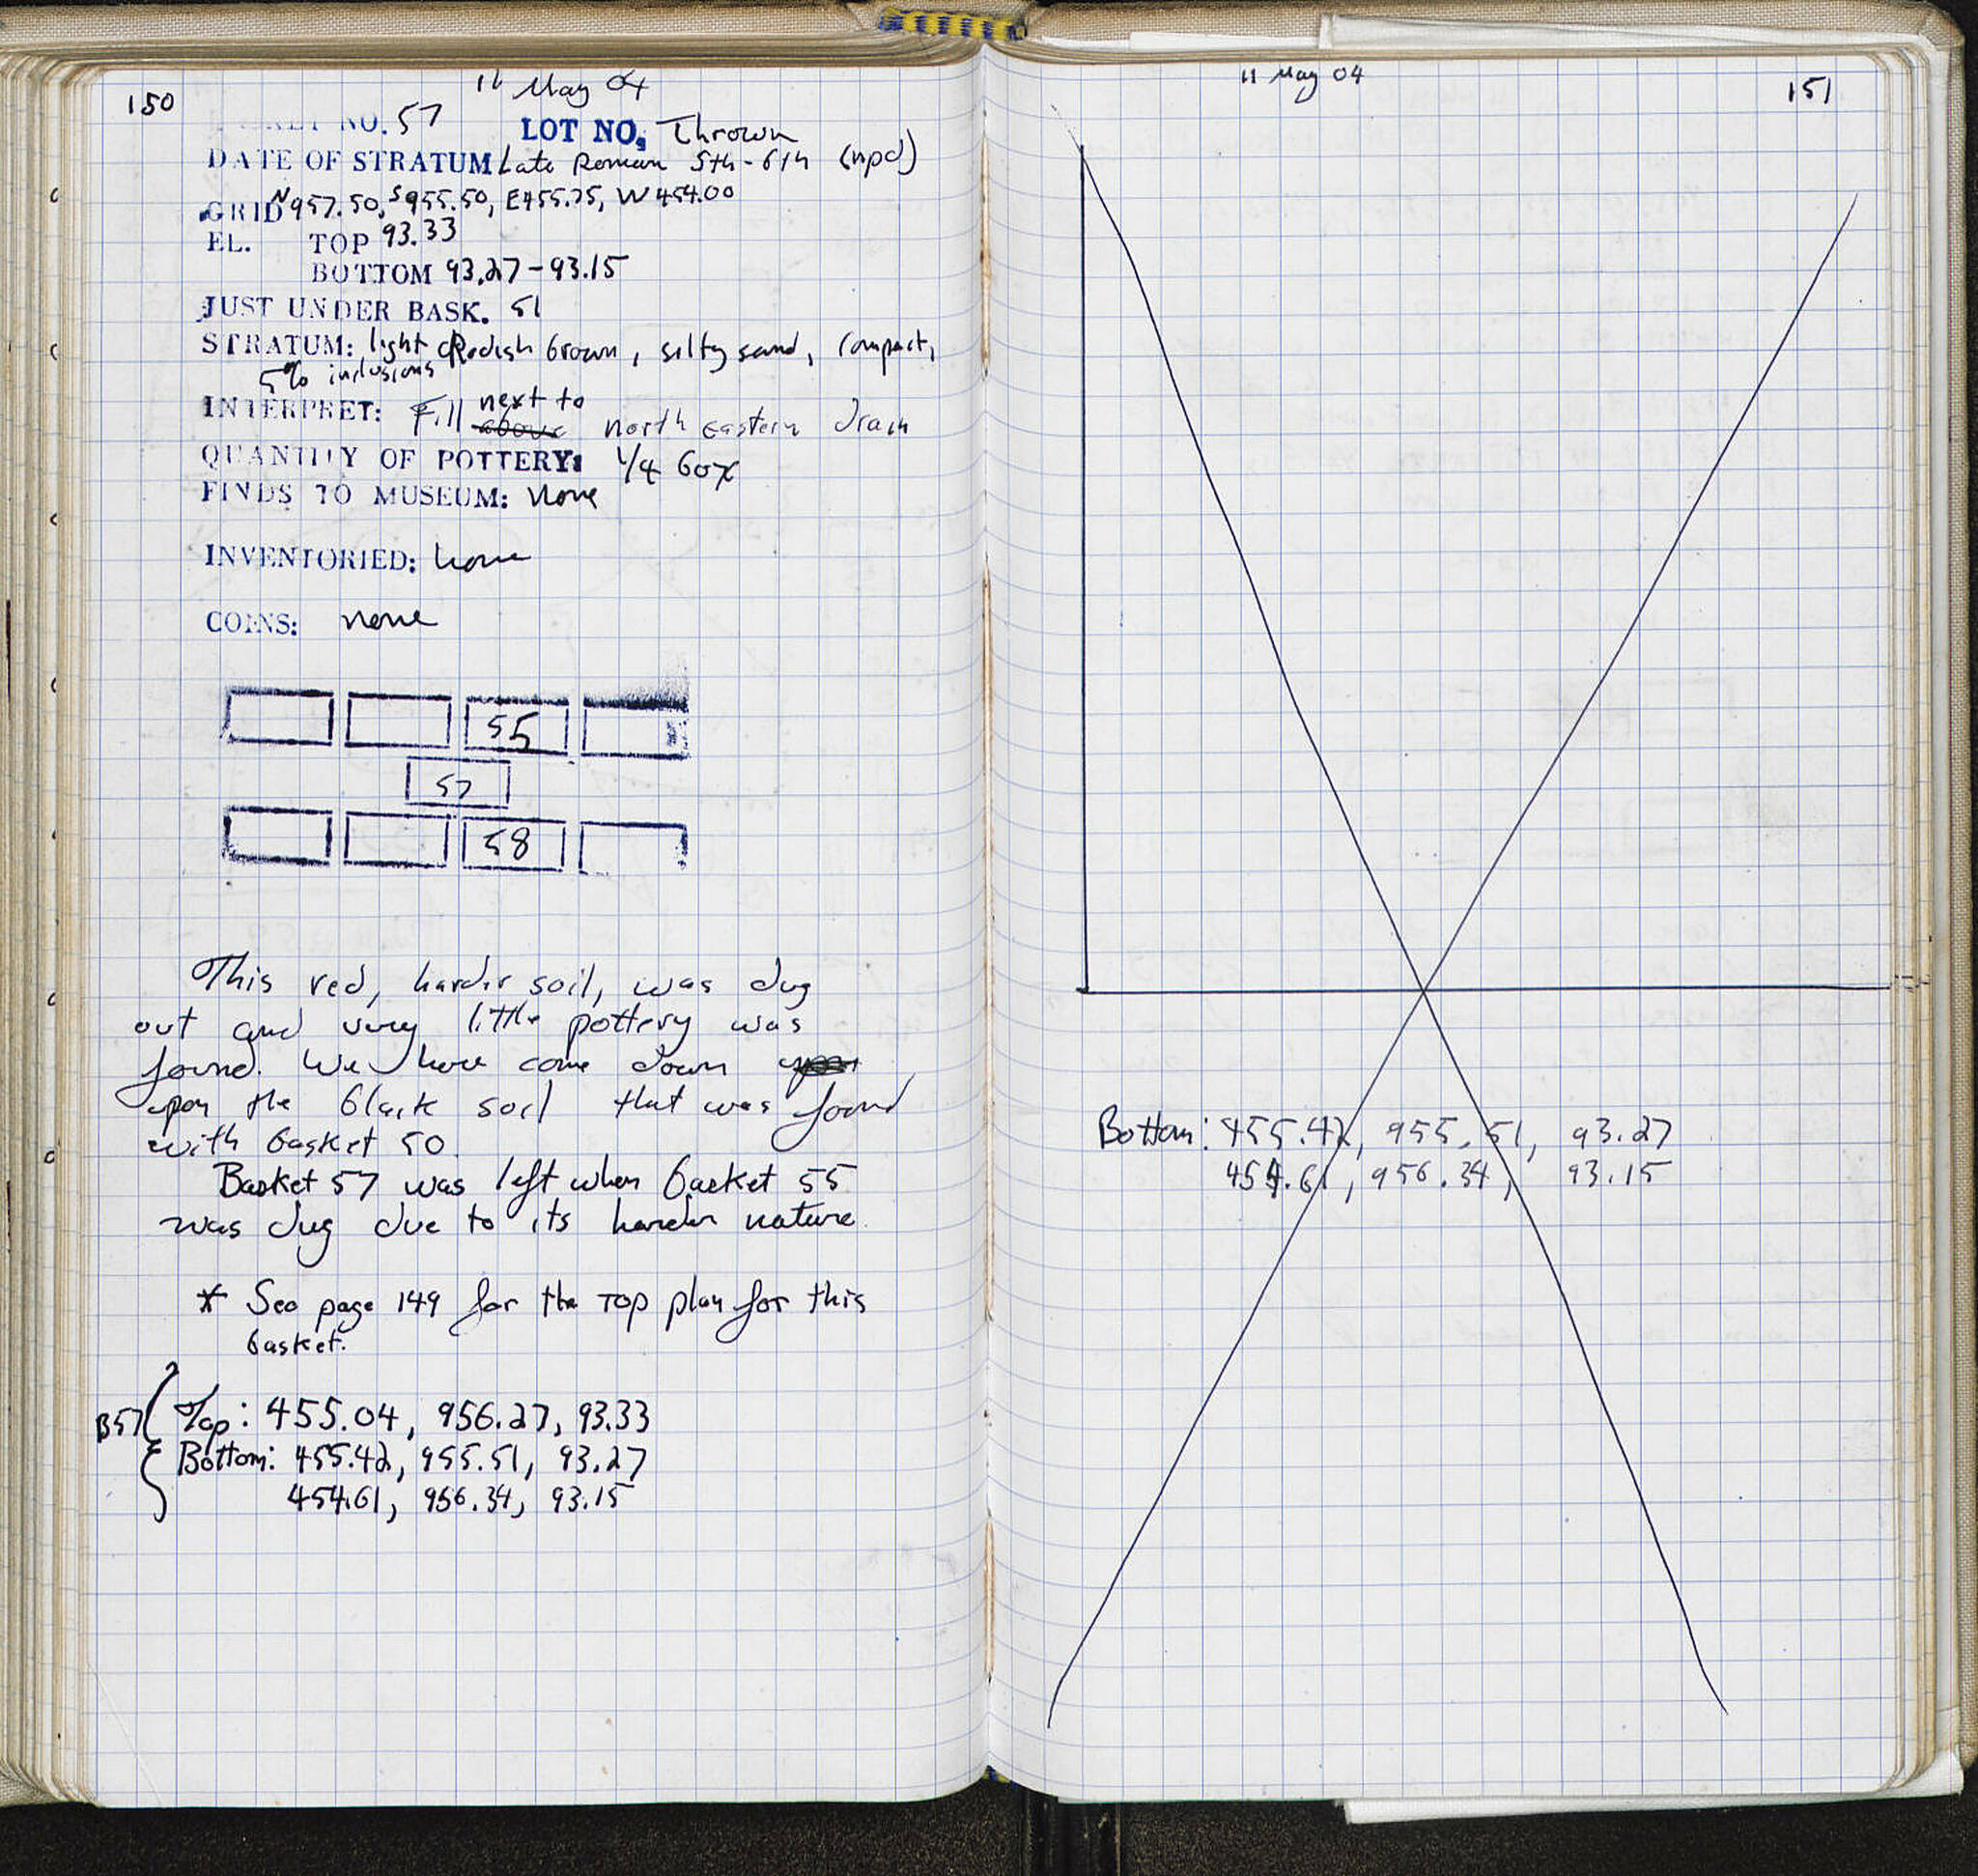 150
11 May 04
BASKET NO. 57 LOT NO. Thrown
DATE OF STRATUM Late Roman 5th-6th (npd)
GRID N957.50, S955.50, E455.25, W454.00
EL. TOP 93.33
BOTTOM 93.27-93.15
JUST UNDER BASK. 51
STRATUM: light Redish brown, silty sand, compact,
5% inclusions
INTERPRET: Fill above next to north eastern drain
QUANTITY OF POTTERY: 1/4 box
FINDS TO MUSEUM: none
INVENTORIED: none
COINS: none
55
57
58
This red, harder soil, was dug
out and very little pottery was
found. We have come down
upon the black soil that was found
with basket 50.
Basket 57 was left when basket 55
was dug due to its harder nature.
* See page 149 for the TOP plan for this
basket.
B57 Top: 455.04, 956.27, 93.33
Bottom: 455.42, 955.51, 93.27
454.61, 956.34, 93.15
11 May 04
151
Bottom: 455.42, 955.51, 93.27
454.61, 956.34, 93.15